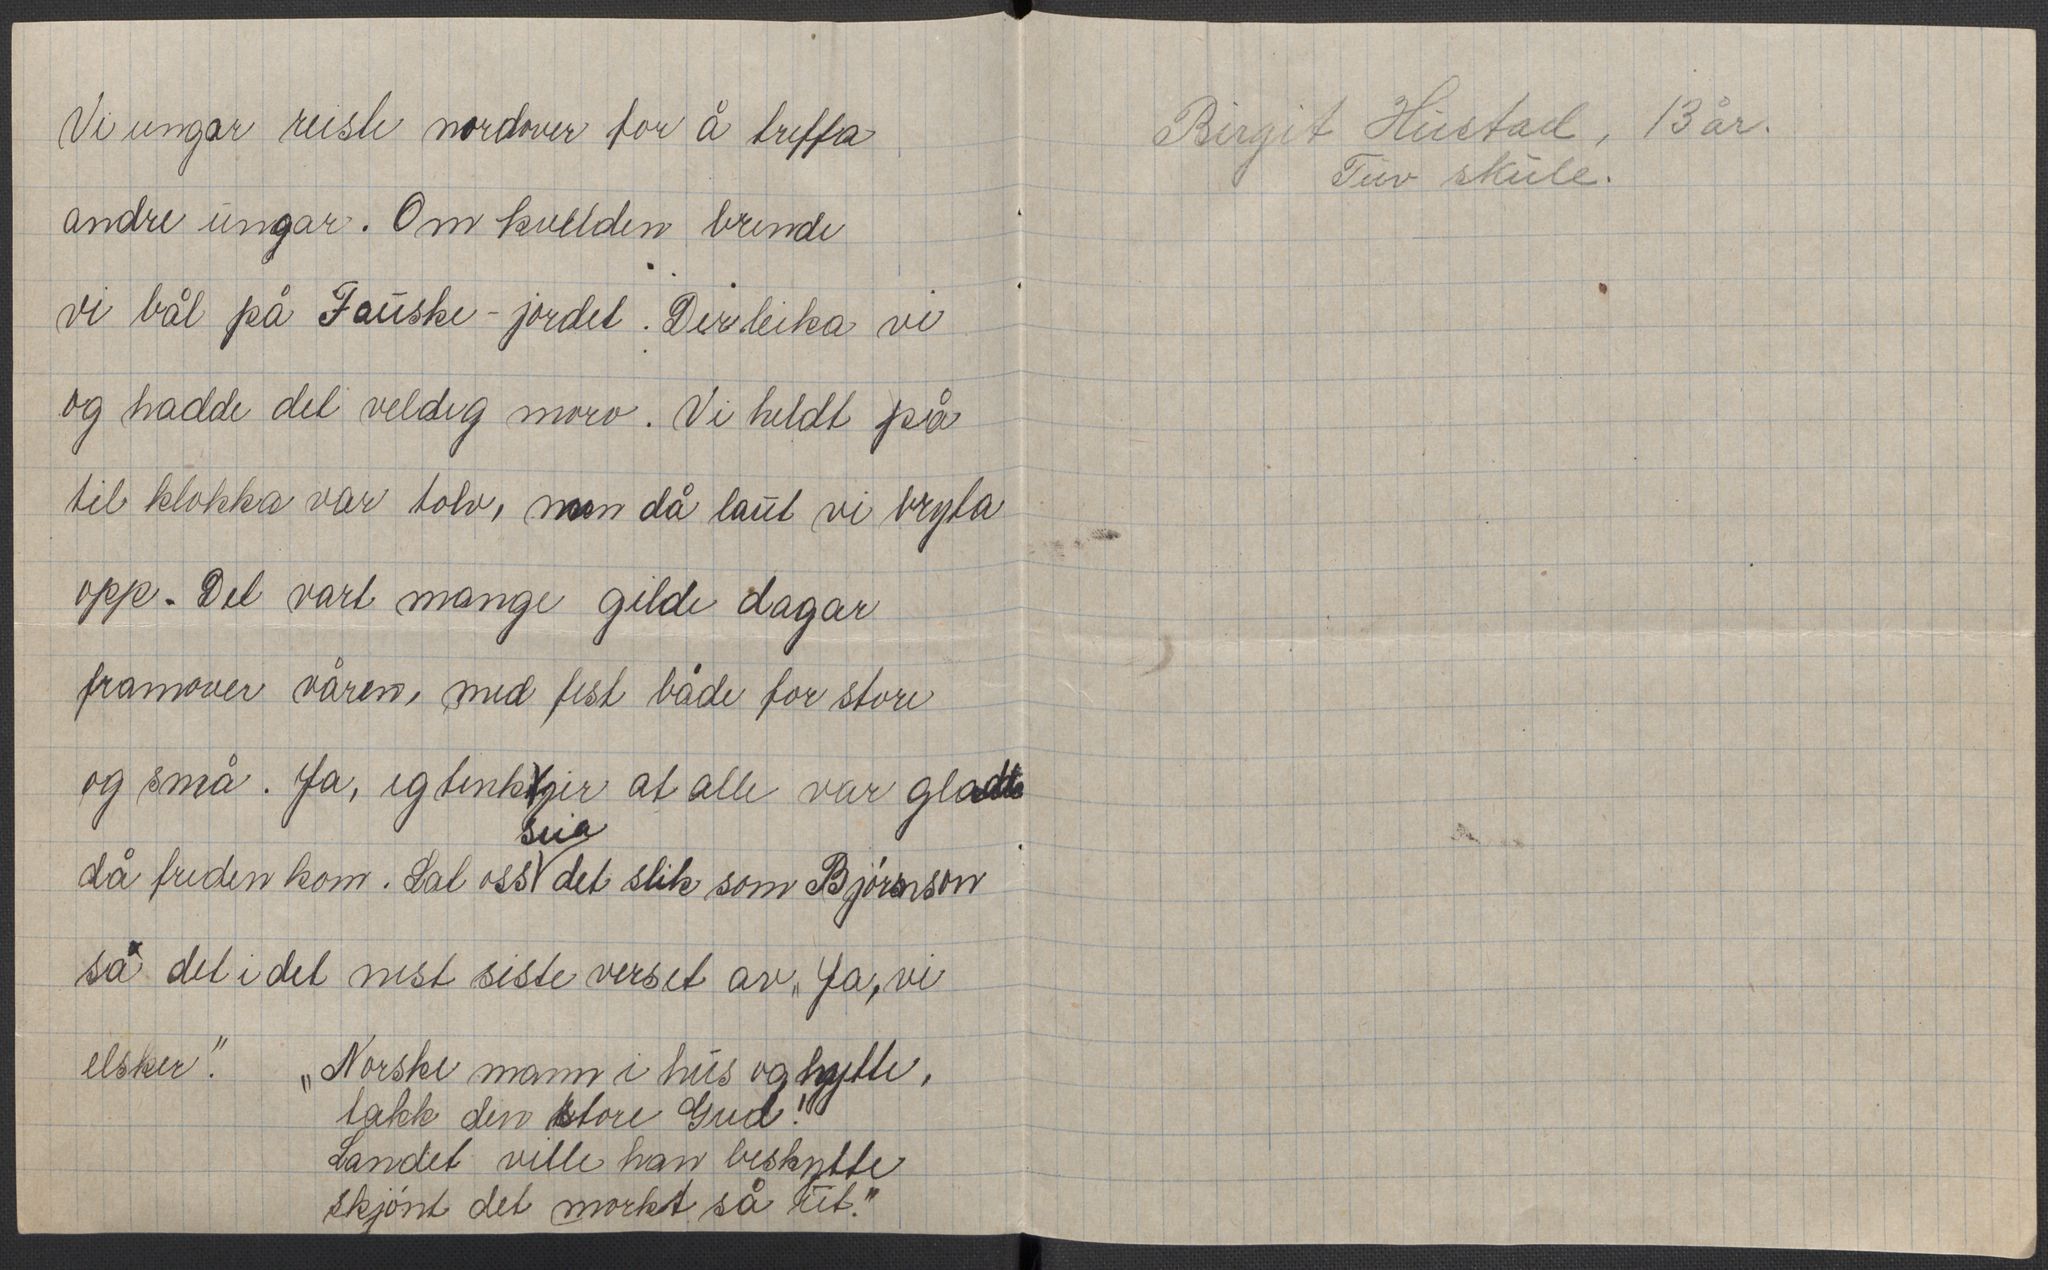 Vi ungar reiste nordover for å treffa
andre ungar. Om kvelden brende
vi bål på Fauske-jordet. Der leika vi
og hadde det veldig moro. Vi heldt på
til klokka var tolv, men då laut vi bryta
opp. Det vart mange gilde dagar
framover våren, med fest både for store
og små. Ja, eg tenkjer at alle var glade
då freden kom. Lat oss seia det slik som Bjørnson
så det i det nest siste verset av „Ja, vi
elsker".
„Norske mann i hus og hytte,
takk din store Gud!
Landet ville han beskytte
skjønt det mørkt så ut."
Birgit Hustad, 13 år.
Tuv skule.